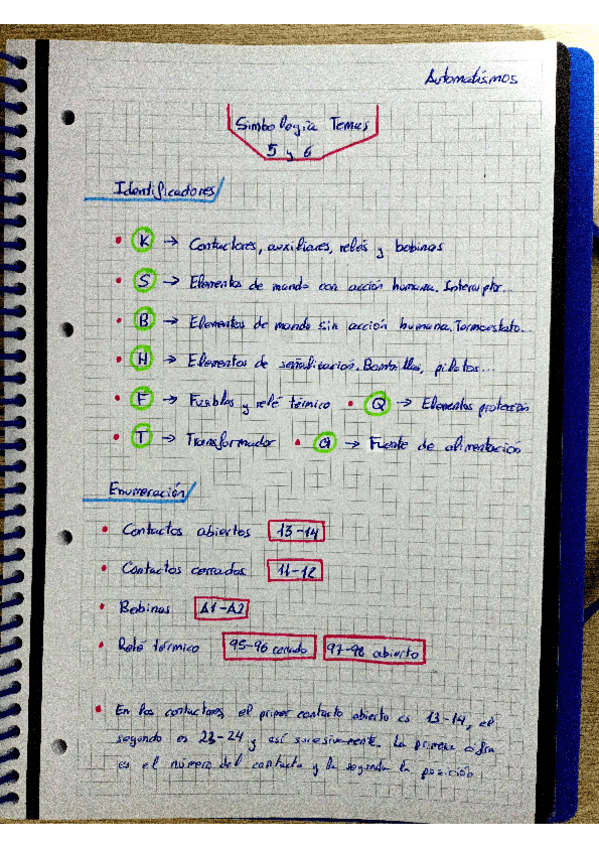 Automatismos
Simbología Temas
5 y 6
Identificadores
• K → Contactores, auxiliares, relés y bobinas
• S → Elementos de mando con acción humana. Interruptor...
• B → Elementos de mando sin acción humana. Termostato...
• H → Elementos de señalización. Bombillas, pilotos...
• F → Fusibles y relé térmico • Q → Elementos protección
• T → Transformador • G → Fuente de alimentación
Enumeración
• Contactos abiertos 13-14
• Contactos cerrados 11-12
• Bobinas A1-A2
• Relé térmico 95-96 cerrado 97-98 abierto
• En los contactores, el primer contacto abierto es 13-14, el
segundo es 23-24 y así sucesivamente. La primera cifra
es el número del contacto y la segunda la posición